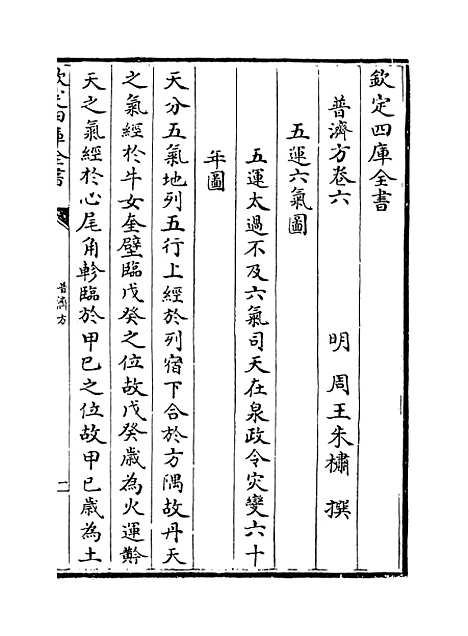 欽定四庫全書
普濟方卷六
明 周王朱橚 撰
五運六氣圖
五運太過不及六氣司天在泉政令灾變六十
年圖
天分五氣地列五行上經於列宿下合於方隅故丹天
之氣經於牛女奎壁臨戊癸之位故戊癸歲為火運黅
天之氣經於心尾角軫臨於甲巳之位故甲巳歲為土
欽定四庫全書
普濟方
二